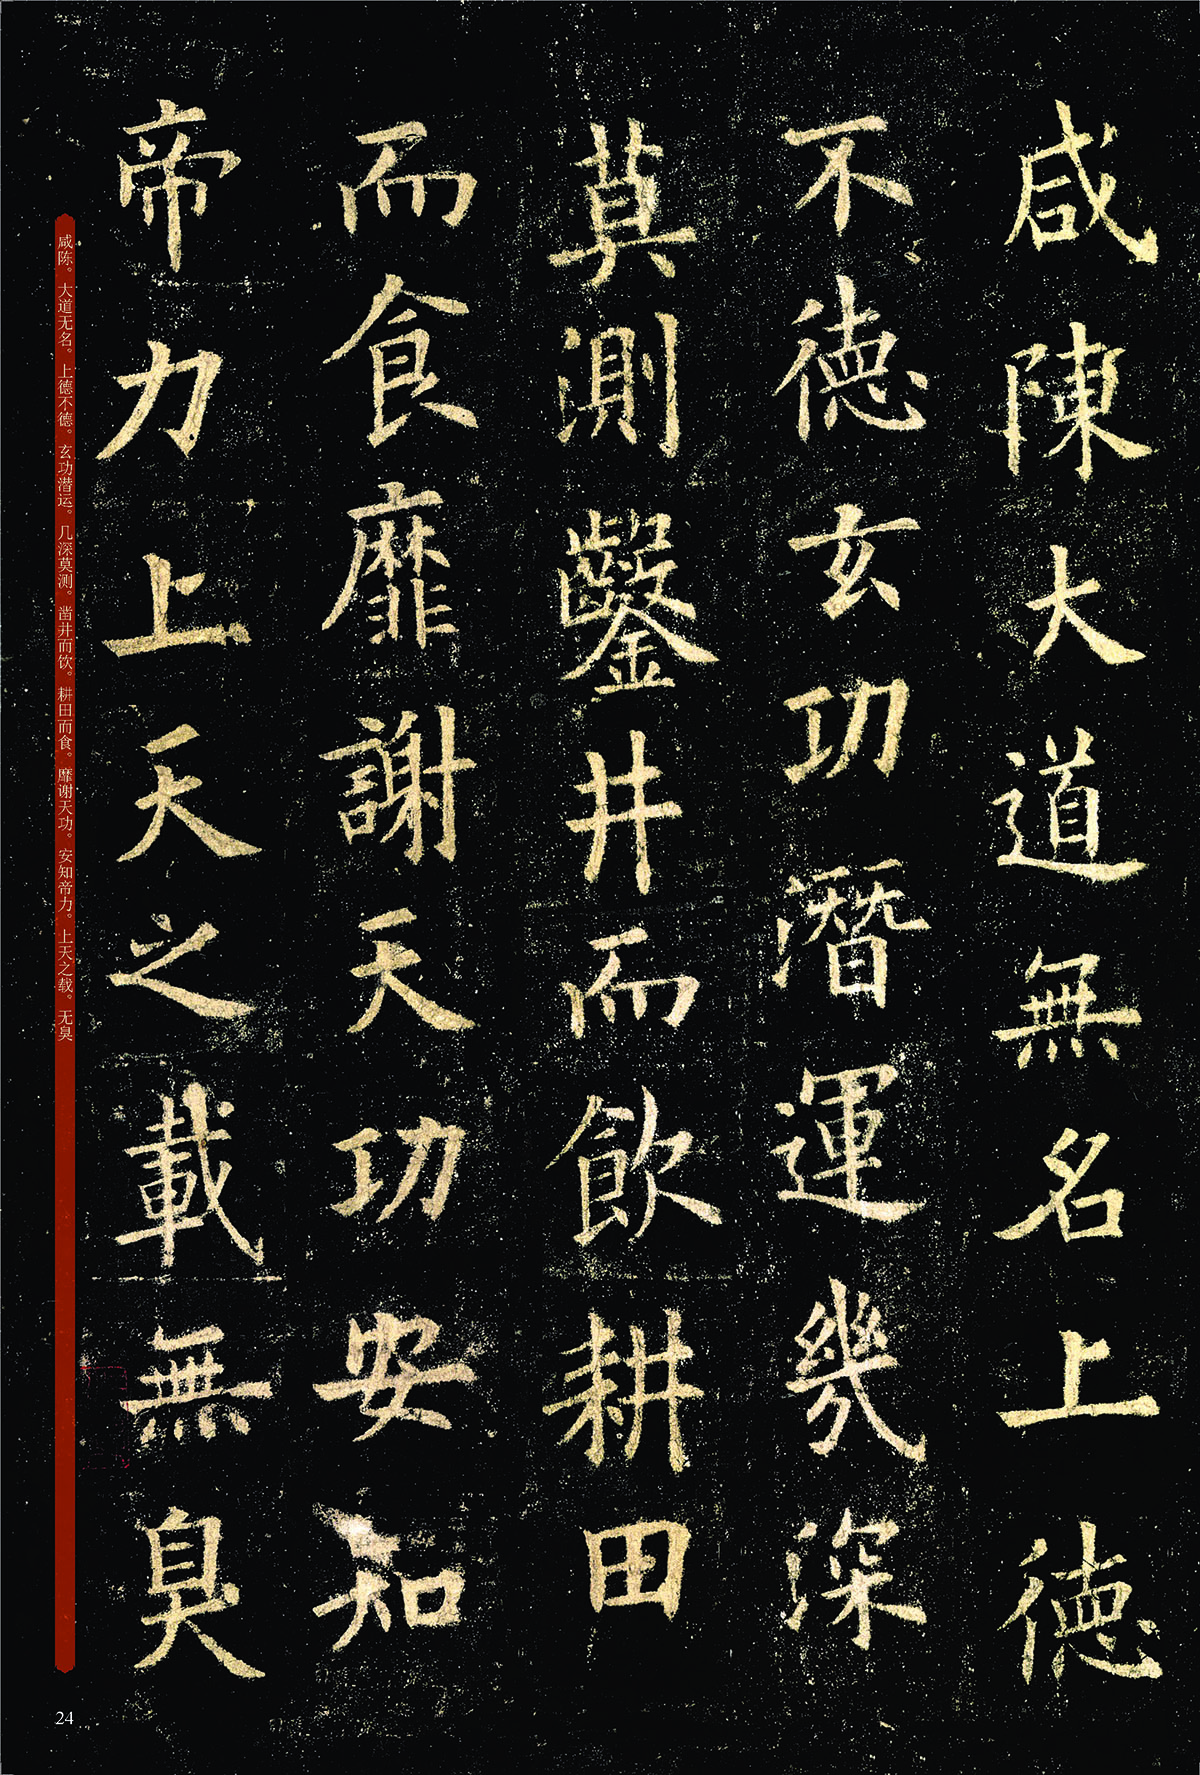 咸陳大道無名上德
不德玄功潛運幾深
莫測鑿井而飲耕田
而食靡謝天功安知
帝力上天之載無臭
咸陈。大道无名。上德不德。玄功潜运。几深莫测。凿井而饮。耕田而食。靡谢天功。安知帝力。上天之载。无臭
24